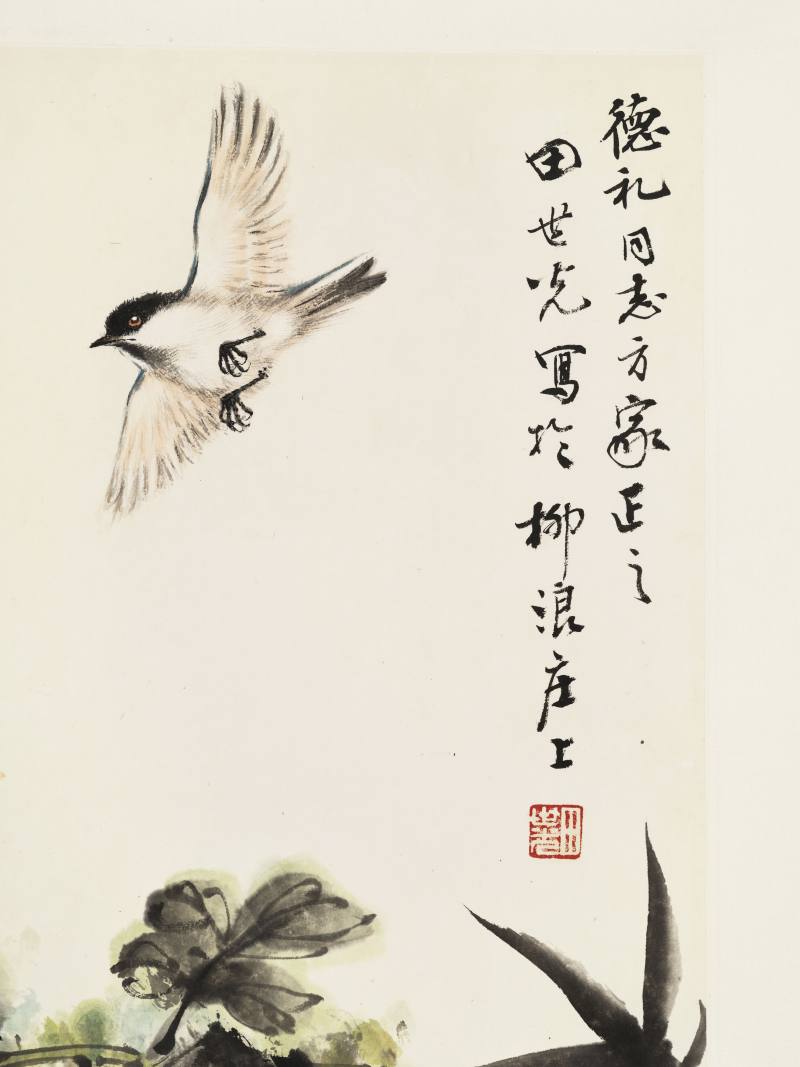 德礼同志方家正之
田世光寫於柳浪庄上
田世光